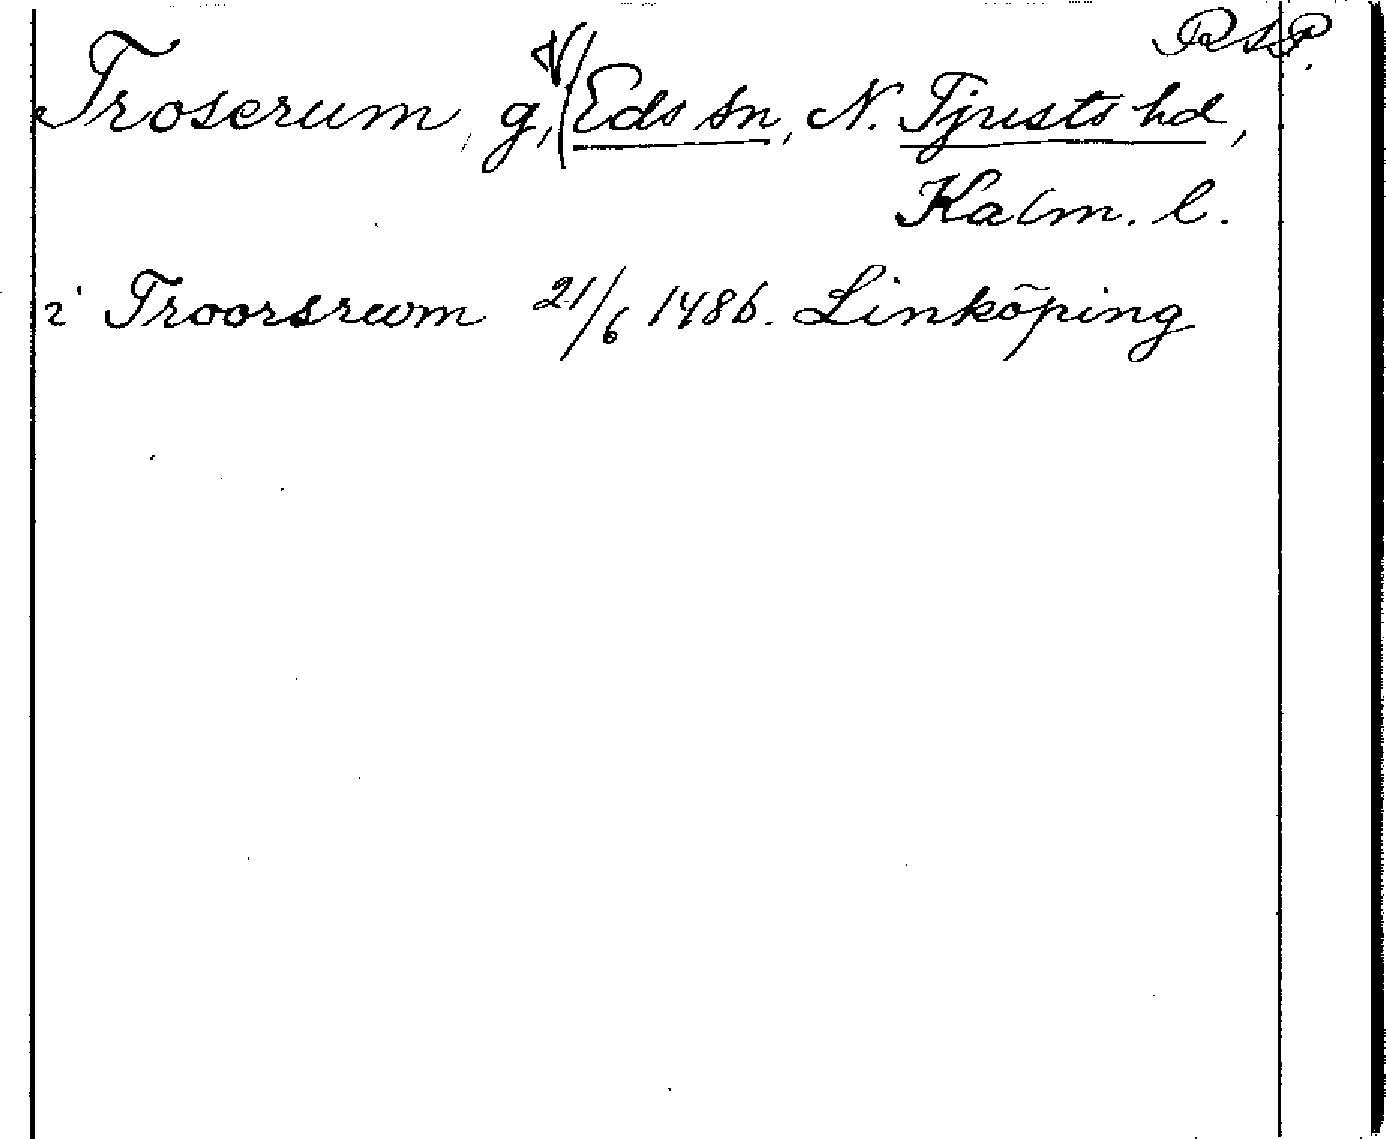 R A P.
Troserum, g, V/ Eds sn, N. Tjusts hd,
Kalm. l.
i Troorsrwm 21/6 1486. Linköping